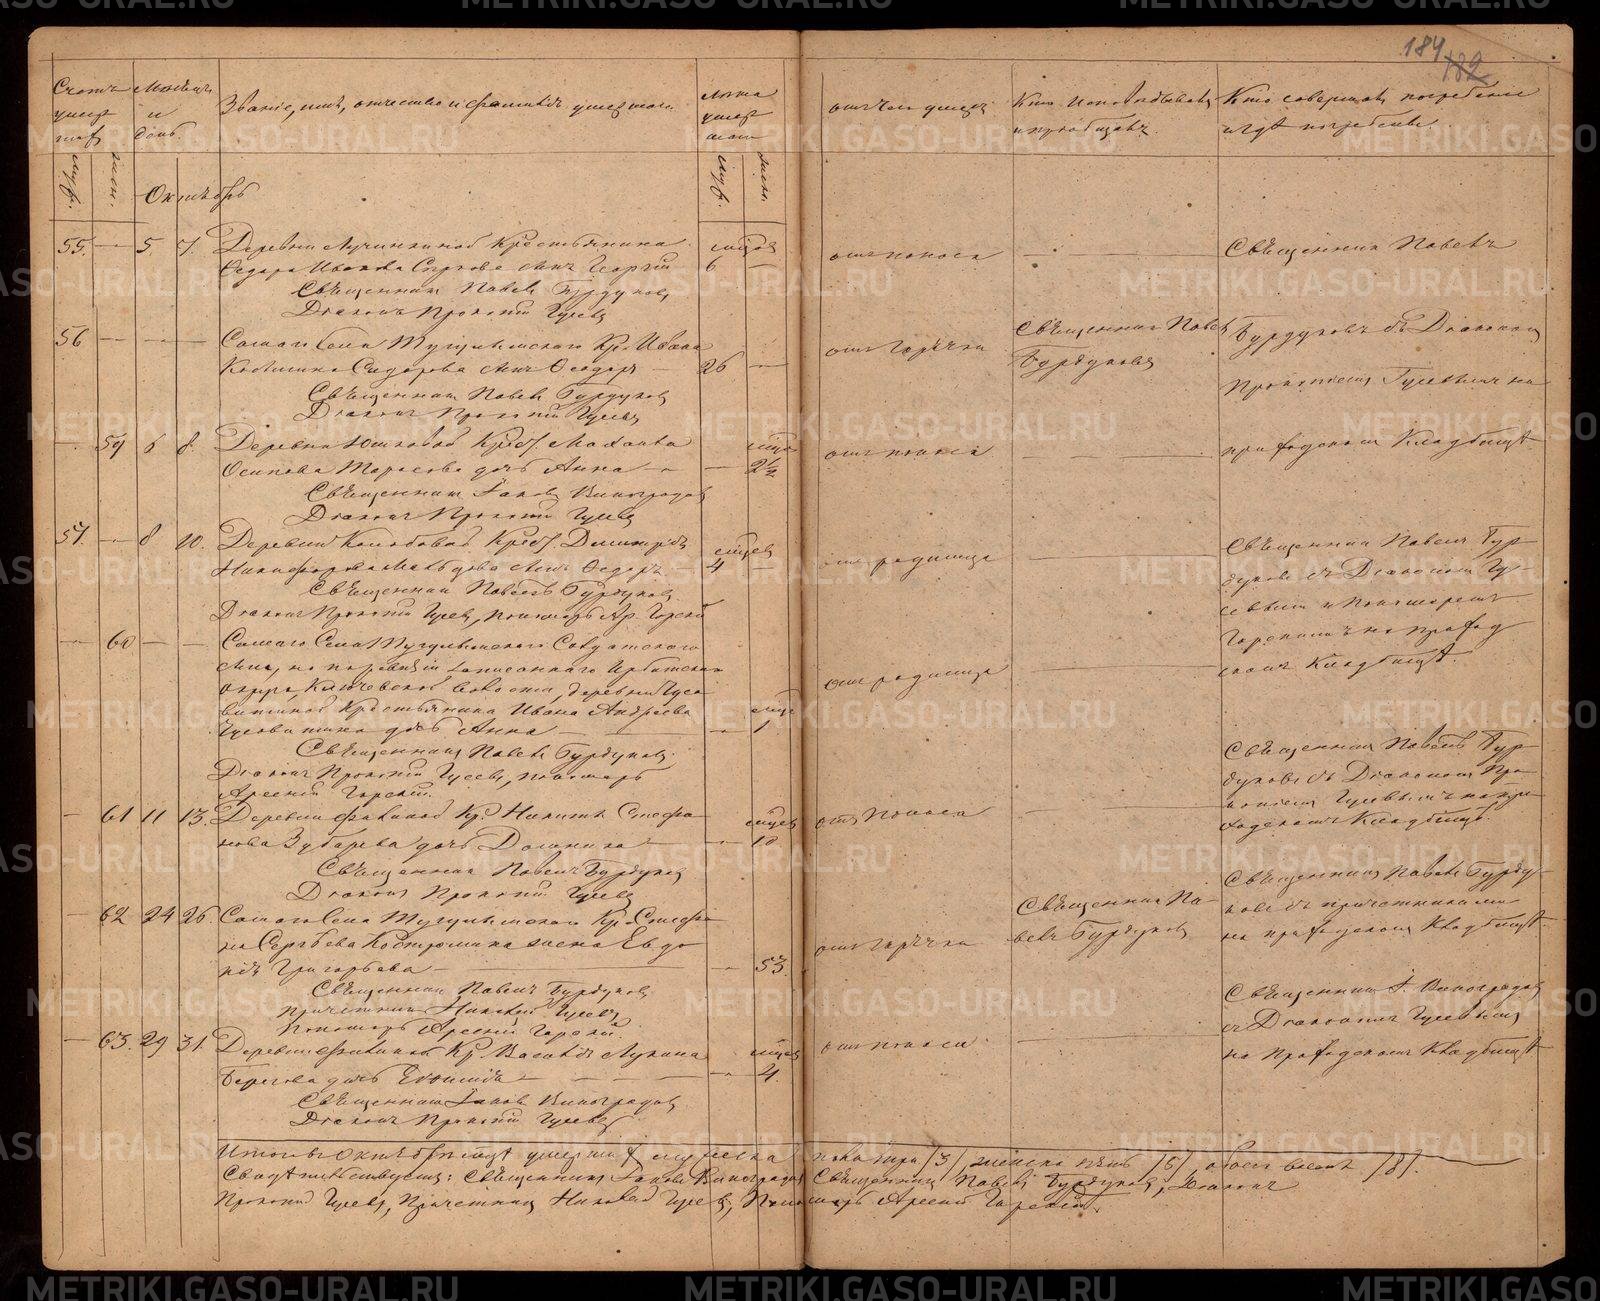 184
182
Счетъ умер
шихъ
Мѣсяцъ
и
день.
Званіе, имя, отчество и фамилія умершаго.
Лѣта
умер
шаго
отъ чего умеръ
Кто исповѣдывалъ
и пріобщалъ.
Кто совершалъ погребеніе
и гдѣ погребены.
муж.
жен.
Октябрь
муж.
жен.
55. — 5. 7. Деревни Крестьянина
Федора Иванова сынъ Георгій
мѣсяц.
6 —
отъ поноса
Священникъ Павелъ
Священникъ Павелъ Бурдуковъ
Діаконъ Прокопій Гусевъ
56 — — — Самаго Села Тугулымскаго Кр. Ивана
Сидорова сынъ Ѳеодоръ — 26 —
отъ горячки
Священникъ Павелъ
Бурдуковъ
Бурдуковъ съ Діакономъ
Прокопіемъ Гусевымъ на
Священникъ Павелъ Бурдуковъ
Діаконъ Прокопій Гусевъ
— 59 6 8. Деревни Юшковой Крест.
Осипова Тарасова дочь Анна — — 2½
отъ поноса
приходскомъ Кладбищѣ
Священникъ Іаковъ Виноградовъ
Діаконъ Прокопій Гусевъ
57. — 8 10. Деревни Крест. Димитрія
Никифорова сынъ Ѳедоръ
4 —
отъ родимца
Священникъ Павелъ Бур
дуковъ съ Діакономъ Гу-
севымъ и Пономаремъ
Горскимъ на приход
скомъ Кладбищѣ.
Священникъ Павелъ Бурдуковъ
Діаконъ Прокопій Гусевъ, пономарь Ар. Горскій
— 60 — — Самаго Села Тугулымскаго Солдатскаго
сына, по ревизіи записаннаго Ирбитскаго
округа Ключевской волости, деревни
Крестьянина Ивана Андреева
дочь Анна — — 1
отъ родимца
Священникъ Павелъ Бурдуковъ.
Діаконъ Прокопій Гусевъ, пономарь
Арсеній Горскій.
Священникъ Павелъ Бур
дуковъ съ Діакономъ Про
копіемъ Гусевымъ на при
ходскомъ Кладбищѣ.
— 61 11 13. Деревни Кр. Никиты Стефа
нова Зубарева дочь Домника — — 10
отъ поноса
Священникъ Павелъ Бурдуковъ
Діаконъ Прокопій Гусевъ
— 62 24 26. Самаго Села Тугулымскаго Кр. Стефа
на Сергѣева Костромина жена Евдо
кія Григорьева — — 53.
отъ горячки
Священникъ Па-
велъ Бурдуковъ
Священникъ Павелъ Бурду-
ковъ съ причетниками
на приходскомъ Кладбищѣ.
Священникъ Павелъ Бурдуковъ
причетникъ Николай Гусевъ
Пономарь Арсеній Горскій.
— 63. 29 31. Деревни Кр. Василія Лукина
Берегова дочь Евѳимія — — 4.
отъ поноса
Священникъ І. Виноградовъ
съ Діакономъ Гусевымъ
на Приходскомъ Кладбищѣ
Священникъ Іаковъ Виноградовъ
Діаконъ Прокопій Гусевъ
Итого въ Октябрѣ мѣсяцѣ умершихъ мужеска пола три /3/, женска пять /5/, обоего восемь /8/.
Свидѣтельствуемъ: Священникъ Іаковъ Виноградовъ, Священникъ Павелъ Бурдуковъ, Діаконъ
Прокопій Гусевъ, Причетникъ Николай Гусевъ, Пономарь Арсеній Горскій.
METRIKI.GASO-URAL.RU